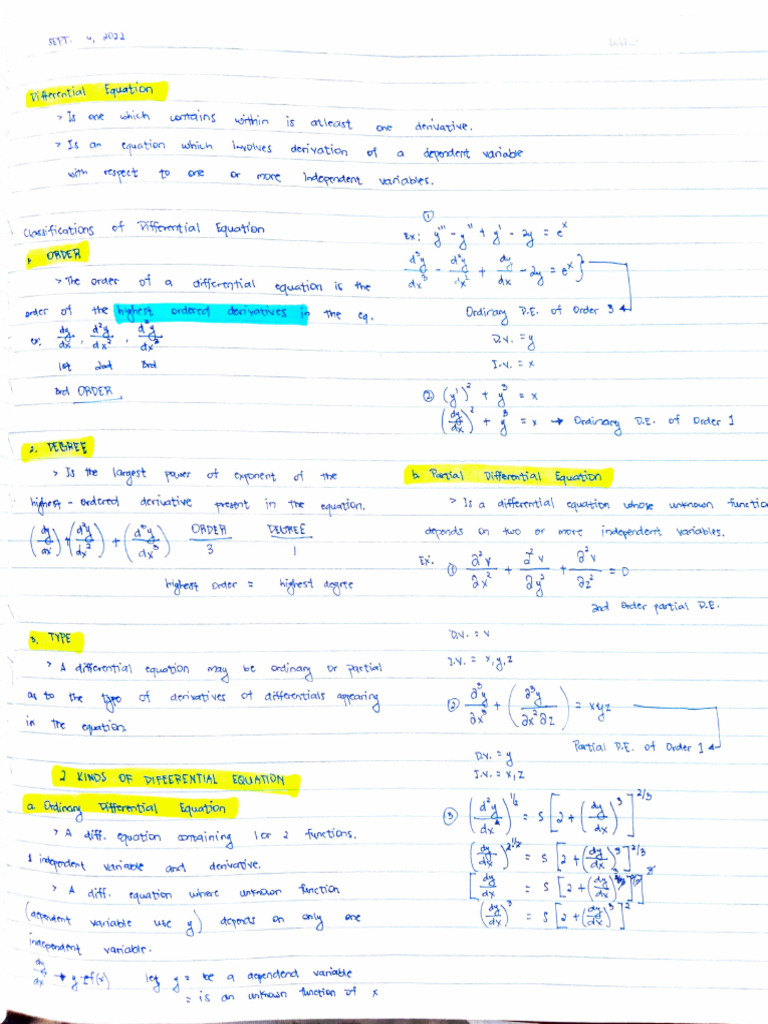 SEPT. 4, 2022
Differential Equation
> Is one which contains within is atleast one derivative.
> Is an equation which involves derivation of a dependent variable
with respect to one or more Independent variables.
Classifications of Differential Equation
1. ORDER
> The order of a differential equation is the
order of the highest ordered derivatives in the eq.
ex: dy/dx , d²y/dx² , d³y/dx³
1st 2nd 3rd
3rd ORDER
2. DEGREE
> Is the largest power of exponent of the
highest - ordered derivative present in the equation.
(dy/dx) + (d²y/dx²) + (d³y/dx³) ORDER DEGREE
3 1
highest order = highest degree
3. TYPE
> A differential equation may be ordinary or partial
as to the type of derivatives of differentials appearing
in the equation.
2 KINDS OF DIFFERENTIAL EQUATION
a. Ordinary Differential Equation
> A diff. equation containing 1 or 2 functions.
1 independent variable and derivative.
> A diff. equation where unknown function
(dependent variable use y) depends on only one
independent variable.
dy/dx → y=f(x) let y = be a dependend variable
= is an unknown function of x
①
Ex: y''' - y'' + y' - 2y = eˣ
d³y/dx³ - d²y/dx² + dy/dx - 2y = eˣ }
Ordinary D.E. of Order 3
D.V. = y
I.V. = x
② (y')² + y³ = x
(dy/dx)² + y³ = x → Ordinary D.E. of Order 1
b. Partial Differential Equation
> Is a differential equation whose unknown function
depends on two or more independent variables.
Ex. ① ∂²v/∂x² + ∂²v/∂y² + ∂²v/∂z² = 0
2nd Order partial D.E.
D.V. = v
I.V. = x, y, z
② ∂³y/∂x³ + (∂³y/∂x²∂z) = xyz
Partial D.E. of Order 1
D.V. = y
I.V. = x, z
③ (d²y/dx²)^1/2 = 5 [2 + (dy/dx)³]^2/3
= 5 [2 + (dy/dx)³]^2/3
[dy/dx = 5 [2 + (dy/dx)
(dy/dx)³ = 5 [2 + (dy/dx)³]²